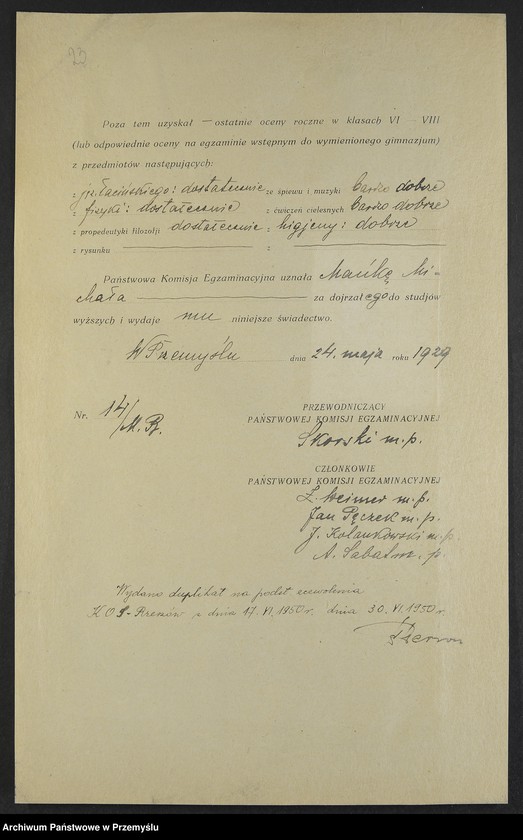 Poza tem uzyskał — ostatnie oceny roczne w klasach VI – VIII
(lub odpowiednie oceny na egzaminie wstępnym do wymienionego gimnazjum)
z przedmiotów następujących:
z jęz. łacińskiego: dostatecznie ze śpiewu i muzyki bardzo dobrze
z fizyki: dostatecznie z ćwiczeń cielesnych bardzo dobrze
z propedeutyki filozofji dostatecznie z higjeny: dobrze
z rysunku z
Państwowa Komisja Egzaminacyjna uznała Mańkę Mi-
chała za dojrzałego do studjów
wyższych i wydaje mu niniejsze świadectwo.
W Przemyślu dnia 24. maja roku 1929
Nr. 14/M.B.
PRZEWODNICZĄCY
PAŃSTWOWEJ KOMISJI EGZAMINACYJNEJ
Skorski m.p.
CZŁONKOWIE
PAŃSTWOWEJ KOMISJI EGZAMINACYJNEJ
Z. Weimer m.p.
Jan Pęczek m.p.
J. Kolankowski m.p.
A. Sabat m.p.
Wydano duplikat na podst zezwolenia
K.O.S-Rzeszów z dnia 17.VI.1950 r. dnia 30.VI.1950 r.
Archiwum Państwowe w Przemyślu